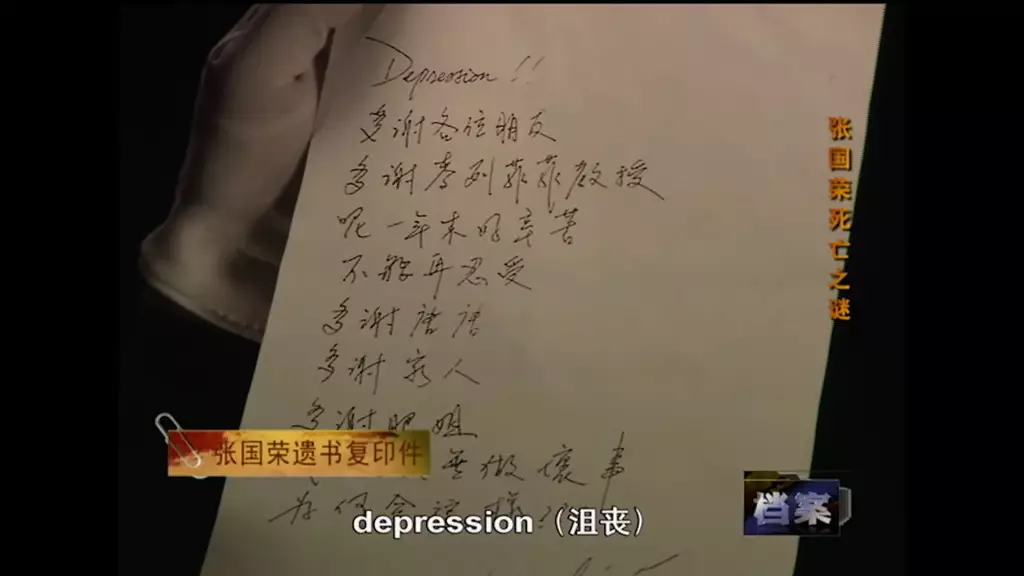 Depression !!
多谢各位朋友
多谢麦列菲菲教授
呢一年来好辛苦
不能再忍受
多谢唐唐
多谢家人
多谢肥姐
無做壞事
为何会这樣?
张国荣遗书复印件
depression（沮丧）
张国荣死亡之谜
档案